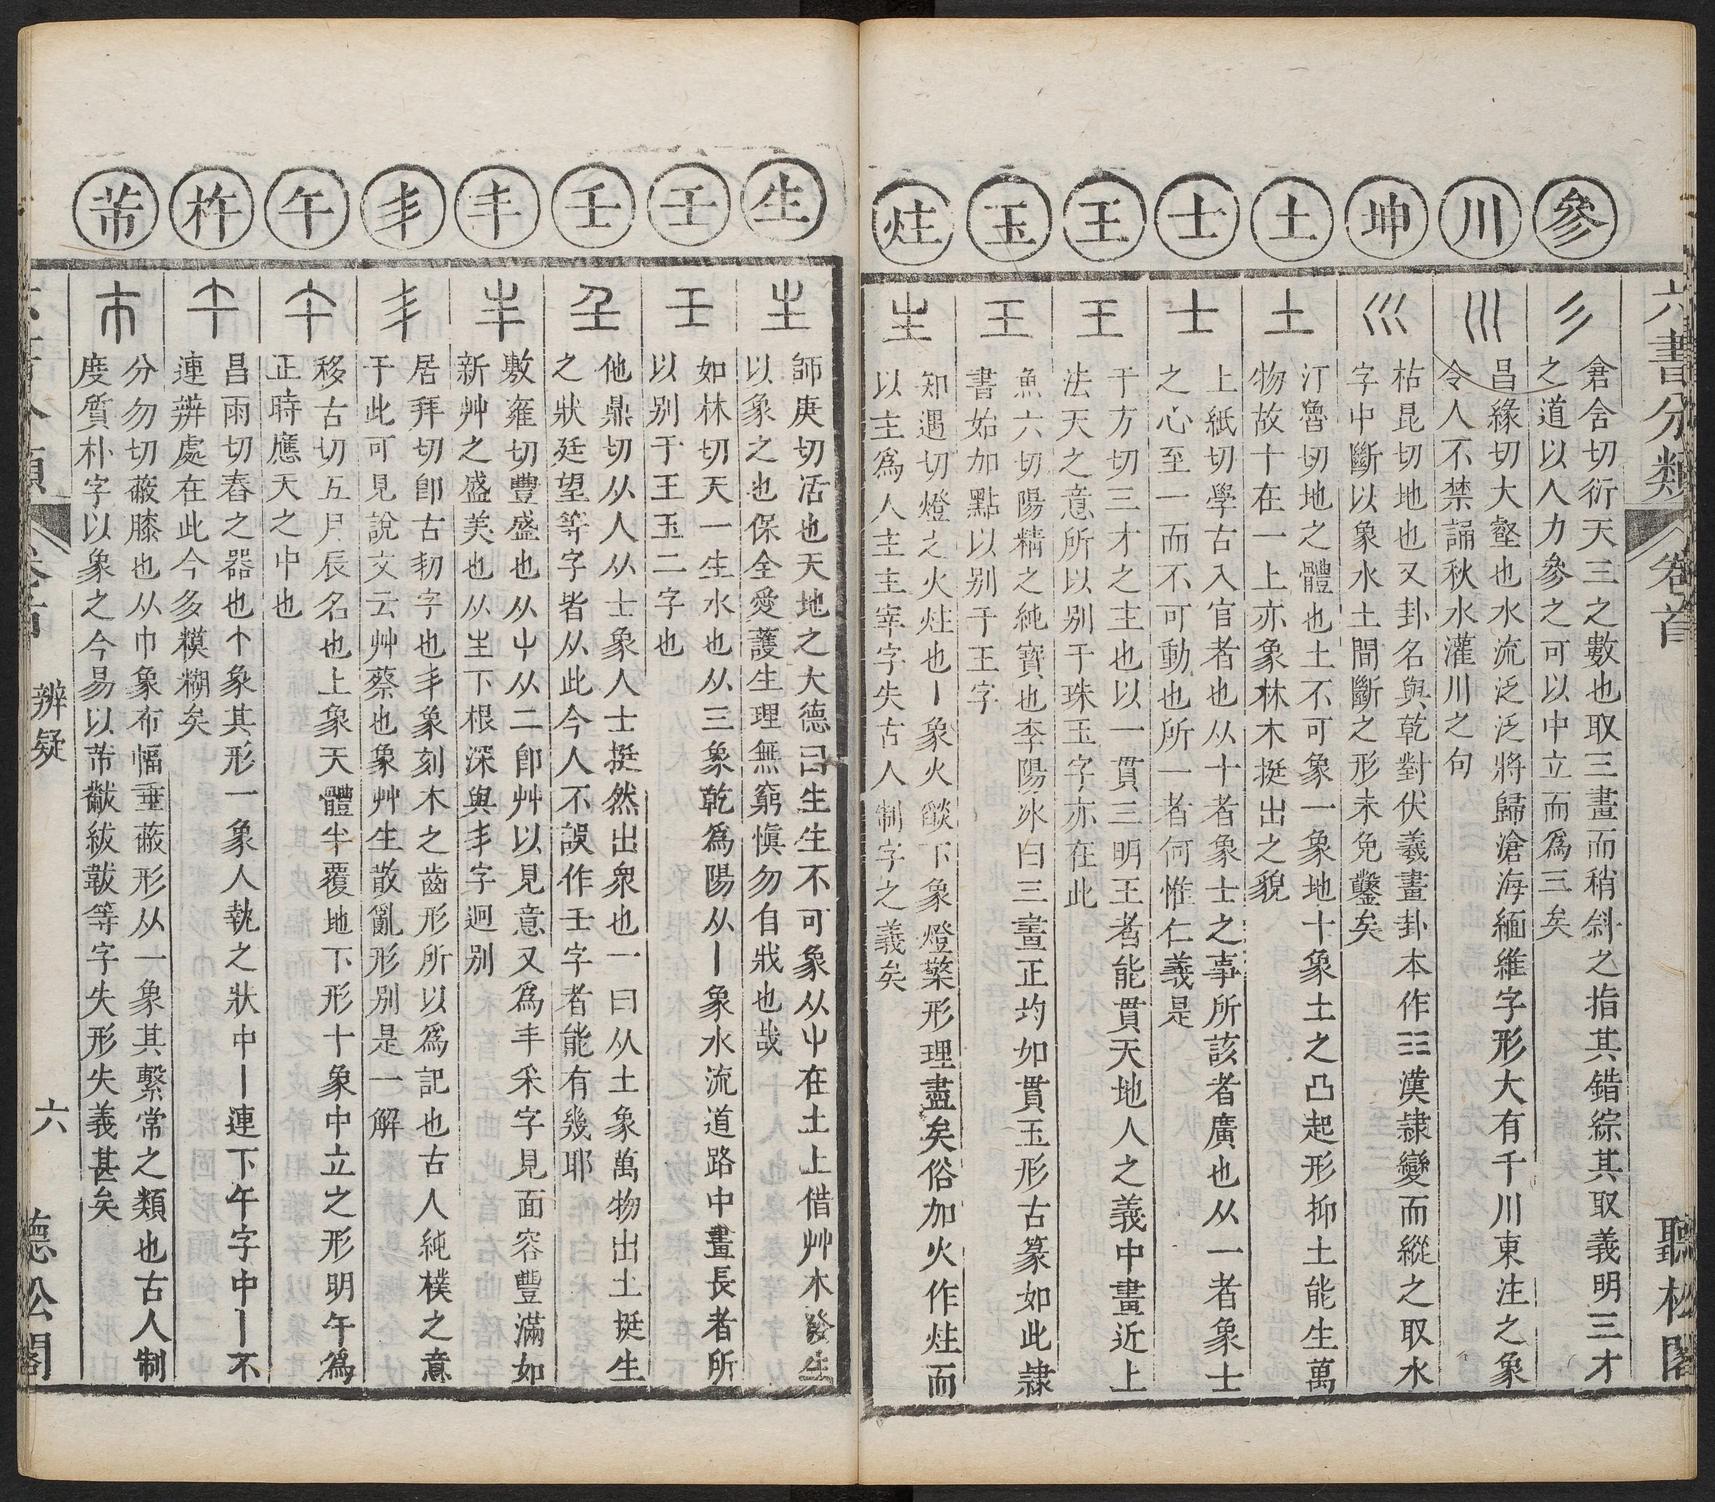 六書分類 卷首
聽松閣
參
彡
倉含切衍天三之數也取三畫而稍斜之指其錯綜其取義明三才
之道以人力參之可以中立而為三矣
川
昌緣切大壑也水流泛泛將歸滄海緬維字形大有千川東注之象
令人不禁誦秋水灌川之句
坤
巛
枯昆切地也又卦名與乾對伏羲畫卦本作☷漢隷變而縱之取水
字中斷以象水土間斷之形未免鑿矣
土
土
汀魯切地之體也土不可象一象地十象土之凸起形抑土能生萬
物故十在一上亦象林木挺出之貌
士
士
上紙切學古入官者也从十者象士之事所該者廣也从一者象士
之心至一而不可動也所一者何惟仁義是
王
王
于方切三才之主也以一貫三明王者能貫天地人之義中畫近上
法天之意所以別于珠玉字亦在此
玉
王
魚六切陽精之純寶也李陽冰曰三畫正均如貫玉形古篆如此隷
書始加點以別于王字
炷
知遇切燈之火炷也丨象火燄下象燈檠形理盡矣俗加火作炷而
以主為人主主宰字失古人制字之義矣
生
師庚切活也天地之大德曰生生不可象从屮在土上借艸木發生
以象之也保全愛護生理無窮慎勿自戕也哉
壬
壬
如林切天一生水也从三象乾為陽从丨象水流道路中畫長者所
以別于王玉二字也
他鼎切从人从士象人士挺然出衆也一曰从土象萬物出土挺生
之狀廷望等字皆从此今人不誤作壬字者能有幾耶
丰
敷雍切豐盛也从屮从二卽艸以見意又為丰采字見面容豐滿如
新艸之盛美也从生下根深與丯字迥別
丯
丯
居拜切卽古㓞字也丯象刻木之齒形所以為記也古人純樸之意
于此可見說文云艸蔡也象艸生散亂形別是一解
午
移古切五月辰名也上象天體半覆地下形十象中立之形明午為
正時應天之中也
杵
昌雨切舂之器也个象其形一象人執之狀中丨連下午字中丨不
連辨處在此今多模糊矣
芾
市
分勿切蔽膝也从巾象布幅垂蔽形从一象其繫常之類也古人制
度質朴字以象之今易以芾黻紱韍等字失形失義甚矣
辨疑
六